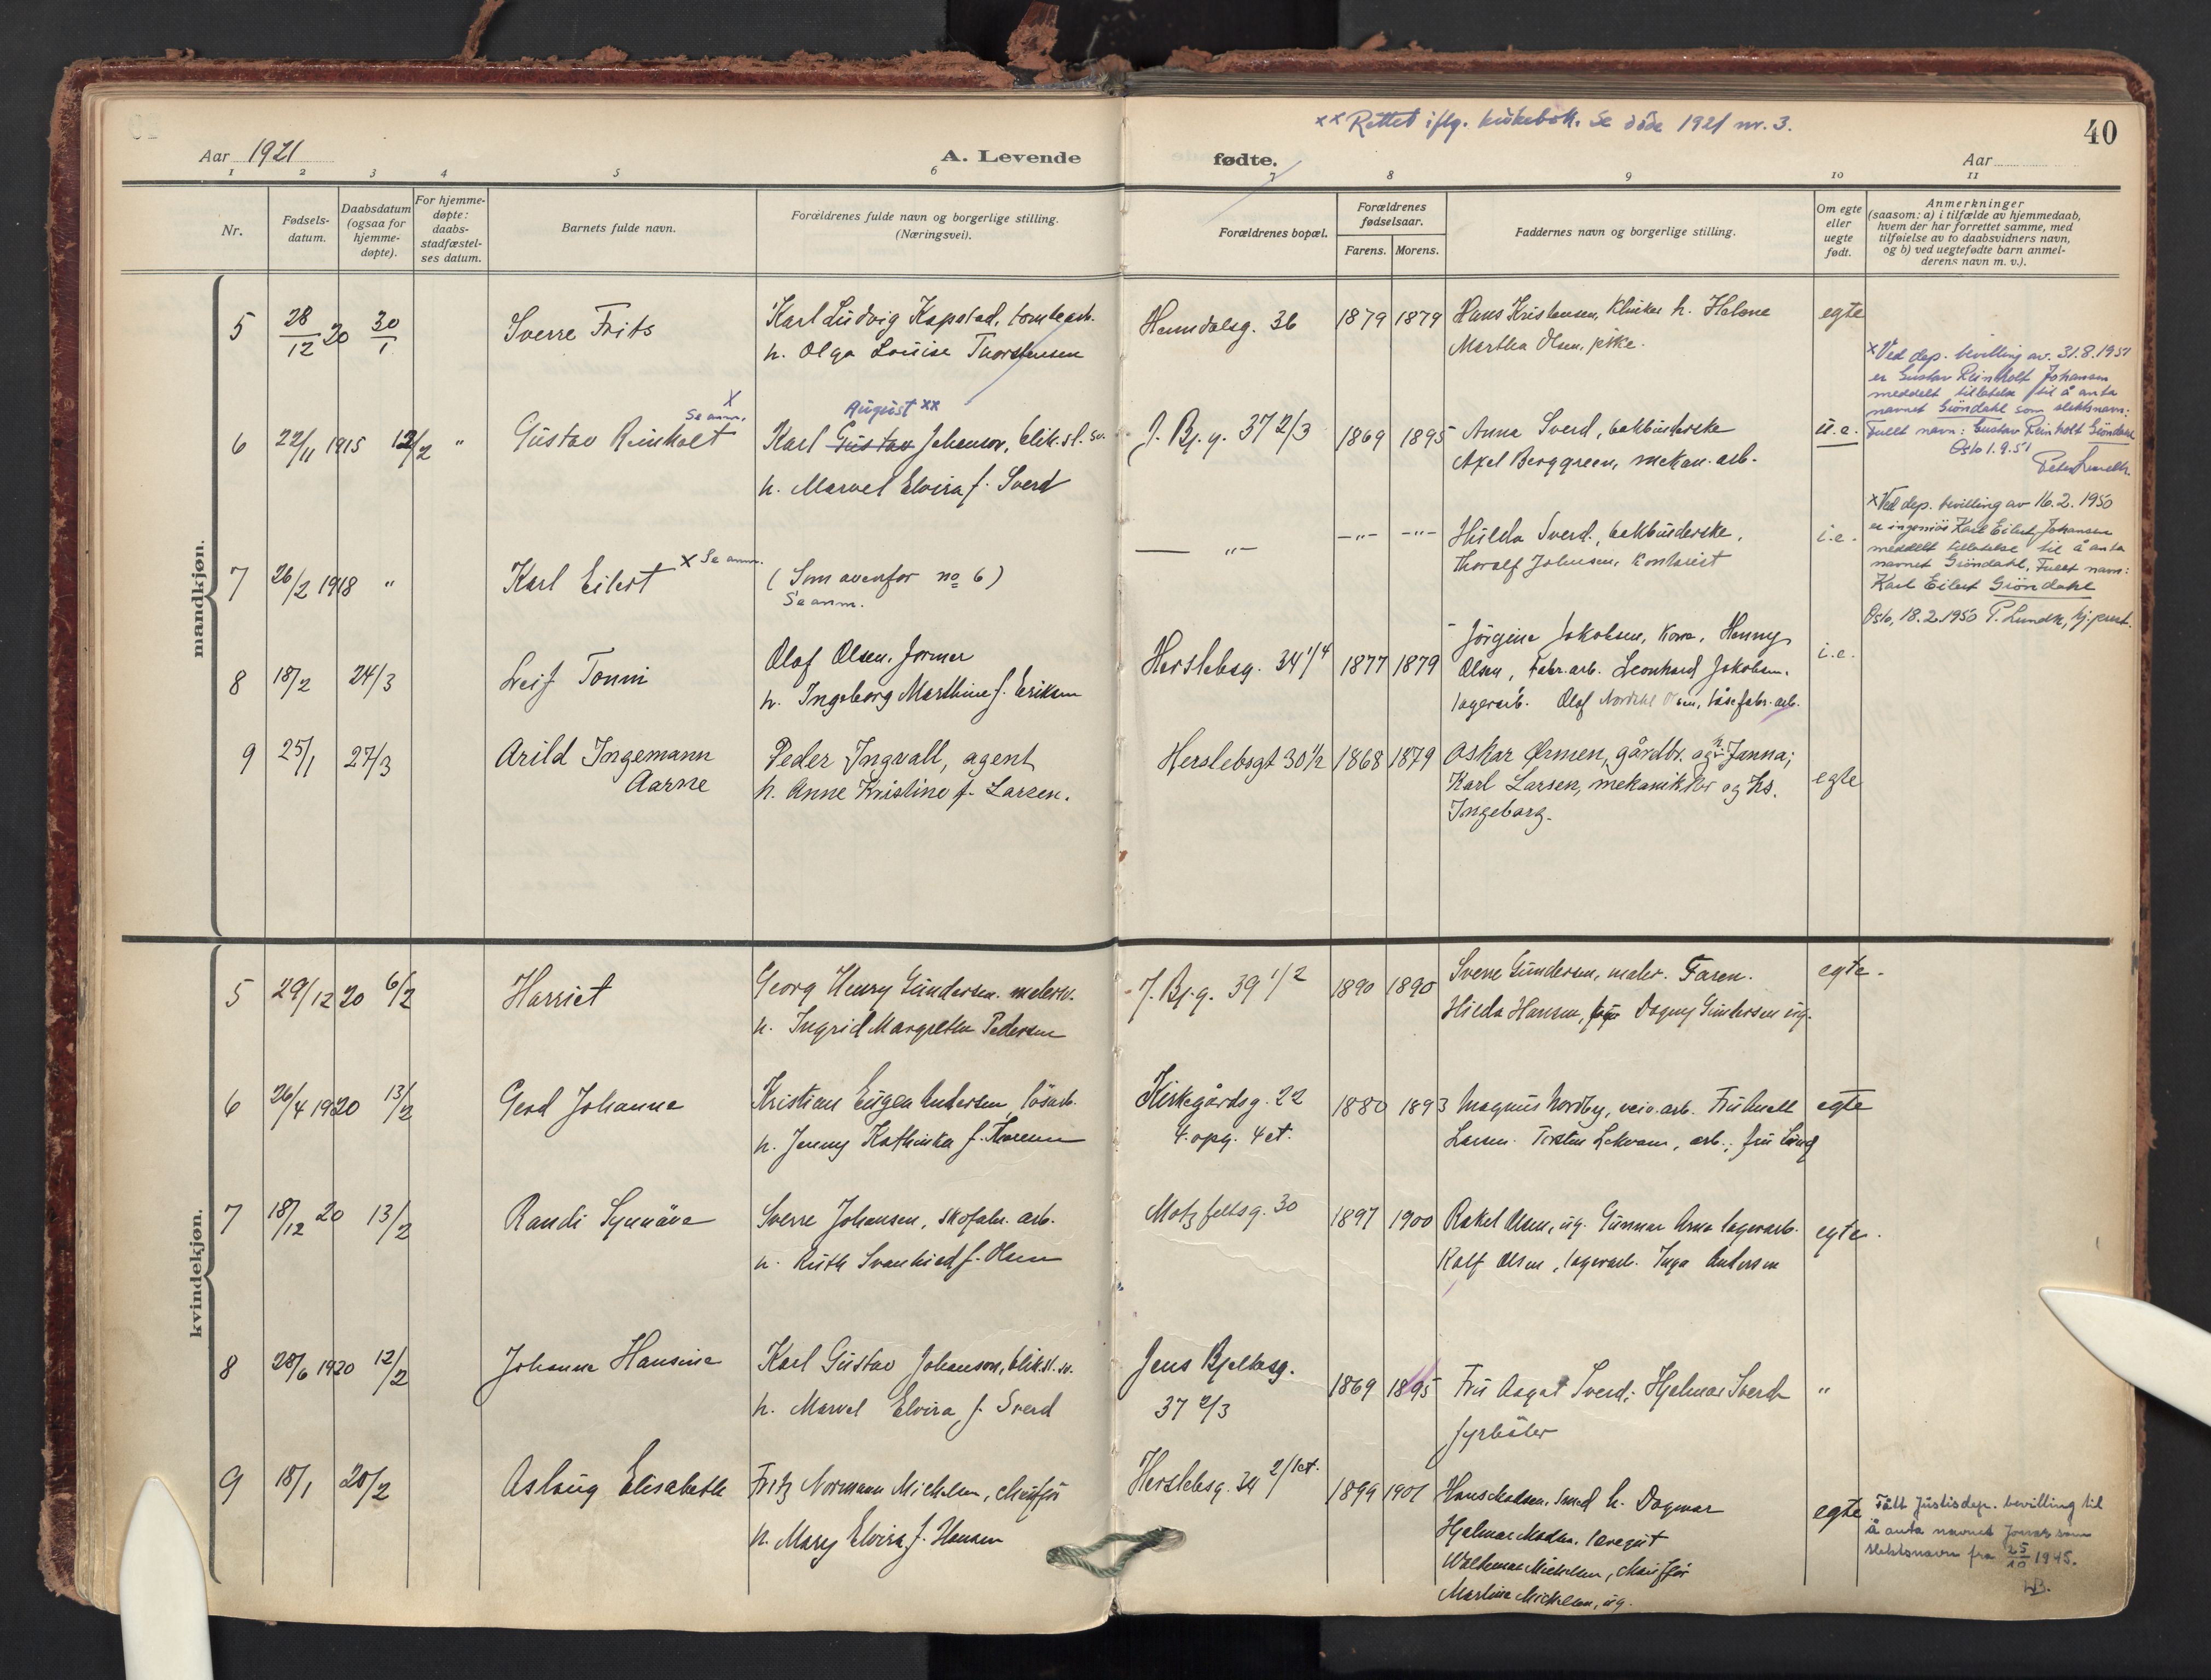 xx Rettet iflg. kirkebok. Se døde 1921 nr. 3.
40
Aar 1921
A. Levende fødte.
Aar
1 2 3 4 5 6 7 8 9 10 11
Nr.
Fødsels-
datum.
Daabsdatum
(ogsaa for
hjemme-
døpte).
For hjemme-
døpte:
daabs-
stadfæstel-
ses datum.
Barnets fulde navn.
Forældrenes fulde navn og borgerlige stilling.
(Næringsvei).
Forældrenes bopæl.
Forældrenes
fødselsaar.
Farens. Morens.
Faddernes navn og borgerlige stilling.
Om egte
eller
uegte
født.
Anmerkninger
(saasom: a) i tilfælde av hjemmedaab,
hvem der har forrettet samme, med
tilføielse av to daabsvidners navn,
og b) ved uegtefødte barn anmel-
derens navn m. v.).
mandkjøn.
5 28/12 20 30/1
Sverre Frits
Karl Ludvig Kapstad, tomtearb.
h. Olga Louise Thorstensen
Heimdalsg. 36
1879 1879
Hans Kristensen, klinker h. Helene
Martha Olsen, pike.
egte
6 22/11 1915 12/2 "
Gustav Reinholt
x
Se anm.
August xx
Karl Gustav Johanson, blik.sl. sv.
h. Marvel Elvira f. Sverd
J. Bj. g. 37 2/3
1869 1895
Anna Sverd, bokbinderske
Axel Berggreen, mekan. arb.
u.e.
x Ved dep. bevilling av. 31.8.1951
er Gustav Reinholt Johansen
meddelt tillatelse til å anta
navnet Grøndahl som slektsnavn:
Fullt navn: Gustav Reinholt Grøndahl
Oslo 1.9.51
7 26/2 1918 "
Karl Eilert x Se anm.
(Som ovenfor no 6)
Se anm.
— " —
—"— —"—
Hilda Sverd, bokbinderske,
Thoralf Johnsen, kontorist
i.e.
x Ved dep. bevilling av 16.2.1950
er ingeniør Karl Eilert Johansen
meddelt tillatelse til å anta
navnet Grøndahl. Fullt navn:
Karl Eilert Grøndahl
Oslo, 18.2.1950 P. Lunde, hj. prest.
8 18/2 24/3
Leif Tonni
Olaf Olsen, former
h. Ingeborg Marthine f. Eriksen
Herslebsg. 34 1/4
1877 1879
Jørgine Jakobsen, kone, Henny
Olsen, Fabr.arb. Leonhard Jakobsen,
lagerarb. Olaf Nordahl Olsen, låsefabr. arb.
i.e.
9 25/1 27/3
Arild Ingemann
Aarne
Peder Ingvall, agent
h. Anne Kristine f. Larsen.
Herslebsgt 30 1/2
1868 1879
Oskar Ormen, gårdbr. og h. Janna;
Karl Larsen, mekaniker og hs.
Ingeborg.
egte
kvindekjøn.
5 29/12 20 6/2
Harriet
Georg Henry Gundersen. malersv.
h. Ingrid Margrethe Pedersen
J. Bj. g. 39 1/2
1890 1890
Sverre Gundersen, maler. Faren.
Hilda Hansen, frue Dagny Gundersen ug.
egte.
6 26/4 1920 13/2
Gerd Johanne
Kristian Eugen Andersen, løsarb.
h. Jenny Kathinka f. Thoresen
Kirkegårdsg. 22
4. opg. 4 et.
1880 1893
Magnus Nordby, veiv. arb. Fru Anett
Larsen. Torsten Lekvam, arb.; fru Lovg
egte
7 18/12 20 13/2
Randi Synnøve
Sverre Johansen, skofabr. arb.
h. Ruth Svanhild f. Olsen
Motzfeltsg. 30
1897 1900
Rakel Olsen, ug. Gunnar Arne lagerarb.
Rolf Olsen, lagerarb. Inga Andersen
egte.
8 28/6 1920 12/2
Johanne Hansine
Karl Gustav Johanson, blik.sl. sv.
h. Marvel Elvira f. Sverd
Jens Bjelkesg.
37 2/3
1869 1895
Fru Aagot Sverd; Hjalmar Sverd
fyrbøter
"
9 18/1 20/2
Aslaug Elisabeth
Fritz Normann Michelsen, chauffør
h. Mary Elvira f. Hansen
Herslebsg. 34 2/1 et.
1899 1901
Hans Madsen, smed h. Dagmar
Hjalmar Madsen,
Waldemar Michelsen, chauffør
Martine Michelsen, ug.
egte
Fått Justisdep. bevilling til
å anta navnet Jonas som
slektsnavn fra 25/10 1945.